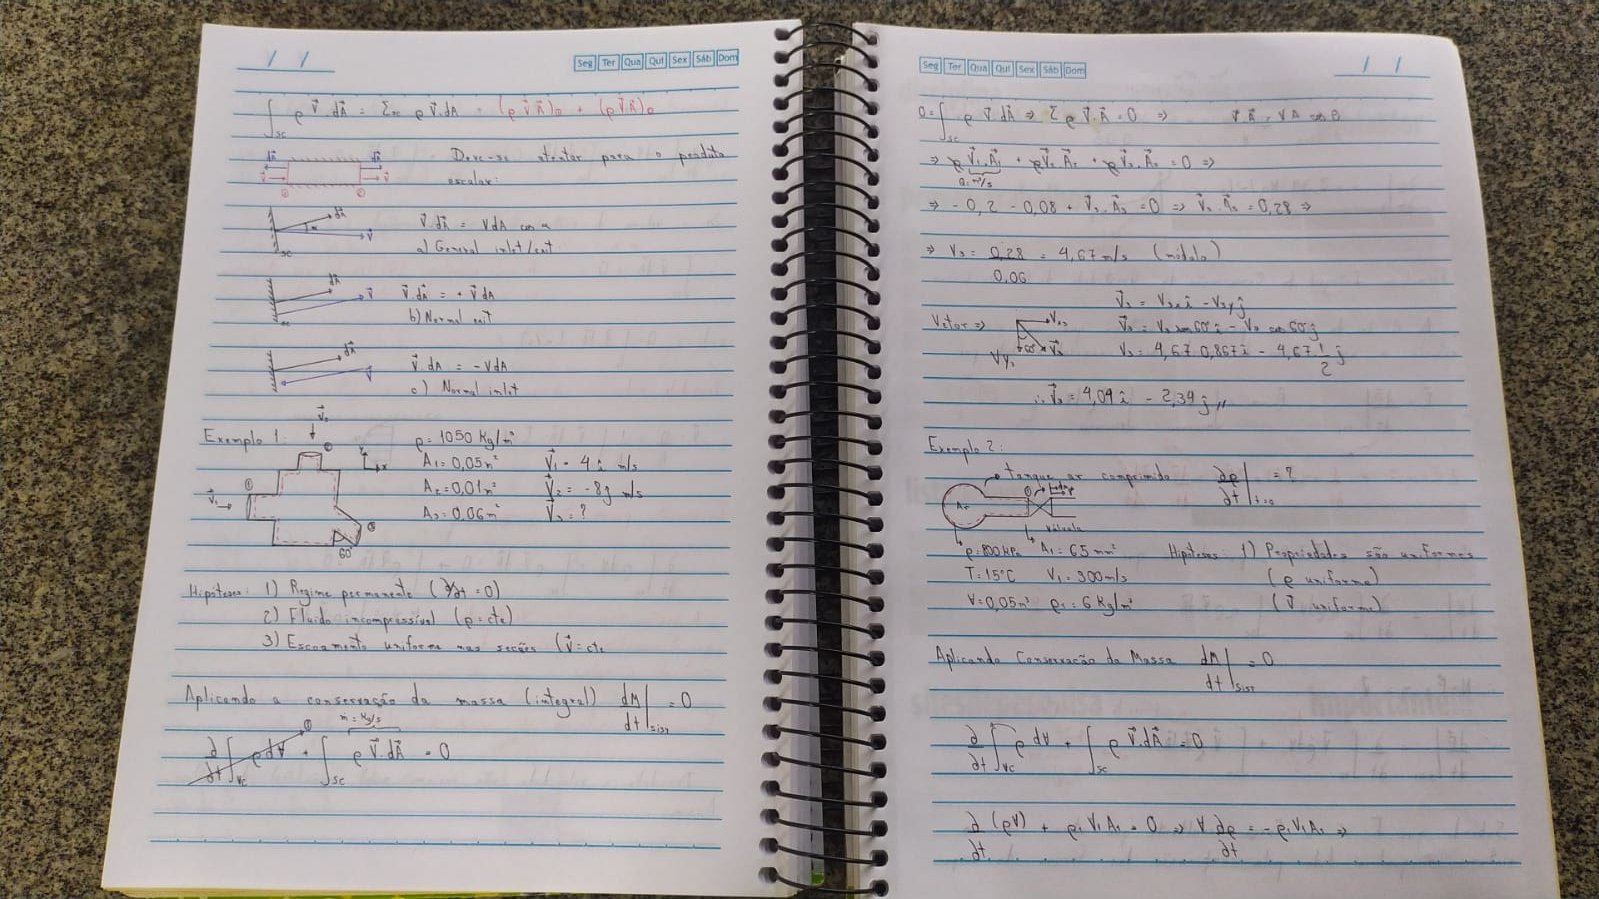 / /
Seg Ter Qua Qui Sex Sáb Dom
∫sc ρ V⃗.dA⃗ = Σsc ρ V⃗.dA = (ρ V⃗ A⃗)① + (ρ V⃗ A⃗)②
dA⃗ dA⃗
V⃗ V⃗
① ②
Deve-se atentar para o produto
escalar:
dA⃗
α
V⃗
sc
V⃗.dA⃗ = VdA cos α
a) General inlet/exit
dA⃗
V⃗
sc
V⃗.dA⃗ = + V⃗ dA
b) Normal exit
dA⃗
V⃗
V⃗.dA = -VdA
c) Normal inlet
Exemplo 1:
V⃗₂
②
y
x
①
V⃗₁
③
60°
ρ = 1050 Kg/m³
A₁ = 0,05m² V⃗₁ = 4 î m/s
A₂ = 0,01m² V⃗₂ = -8ĵ m/s
A₃ = 0,06m² V⃗₃ = ?
Hipóteses: 1) Regime permanente (∂/∂t = 0)
2) Fluido incompressível (ρ = cte)
3) Escoamento uniforme nas seções (V⃗ = cte
Aplicando a conservação da massa (integral) dM/dt|SIST = 0
ṁ = Kg/s
∂/∂t ∫VC ρ dV + ∫SC ρ V⃗.dA⃗ = 0
Seg Ter Qua Qui Sex Sáb Dom
/ /
0 = ∫sc ρ V⃗.dA⃗ ⇒ Σ ρ V⃗.A⃗ = 0 ⇒ V⃗ A⃗ = V A cos θ
⇒ ρ V⃗₁.A⃗₁ + ρV⃗₂ A⃗₂ + ρ V⃗₃.A⃗₃ = 0 ⇒
Q = m³/s
⇒ - 0,2 - 0,08 + V⃗₃.A⃗₃ = 0 ⇒ V⃗₃.A⃗₃ = 0,28 ⇒
⇒ V₃ = 0,28/0,06 = 4,67 m/s (módulo)
V⃗₃ = V₃x î - V₃y ĵ
Vetor ⇒
Vx₃
60° V⃗₃
Vy₃
V⃗₃ = V₃ sen 60 î - V₃ cos 60 ĵ
V₃ = 4,67.0,867 î - 4,67.1/2 ĵ
∴ V⃗₃ = 4,04 î - 2,34 ĵ //
Exemplo 2:
Tanque ar comprimido
∂ρ/∂t|t=0 = ?
Ar
①
Válvula
P = 800KPa A₁ = 65 mm² Hipóteses: 1) Propriedades são uniformes
T = 15°C V₁ = 300m/s (ρ uniforme)
V = 0,05m³ ρ₁ = 6 Kg/m³ (V⃗ uniforme)
Aplicando Conservação da Massa dM/dt|SIST = 0
∂/∂t ∫VC ρ dV + ∫SC ρ V⃗.dA⃗ = 0
∂/∂t (ρV) + ρ₁ V₁ A₁ = 0 ⇒ V ∂ρ/∂t = - ρ₁ V₁ A₁ ⇒